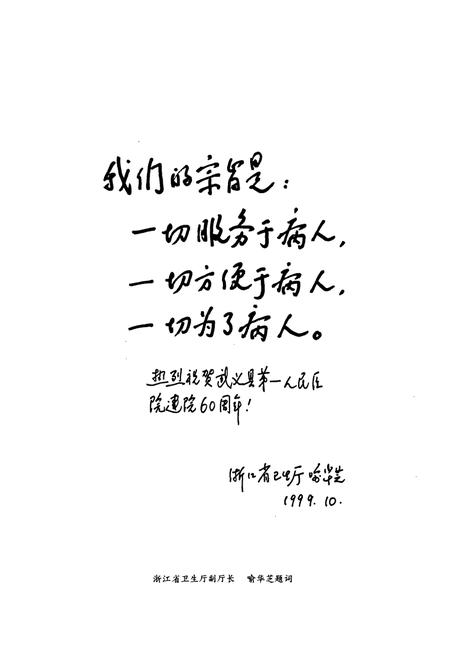 我们的宗旨是：
一切服务于病人，
一切方便于病人，
一切为了病人。
热烈祝贺武义县第一人民医
院建院60周年！
浙江省卫生厅 喻华芝
1999.10.
浙江省卫生厅副厅长 喻华芝题词